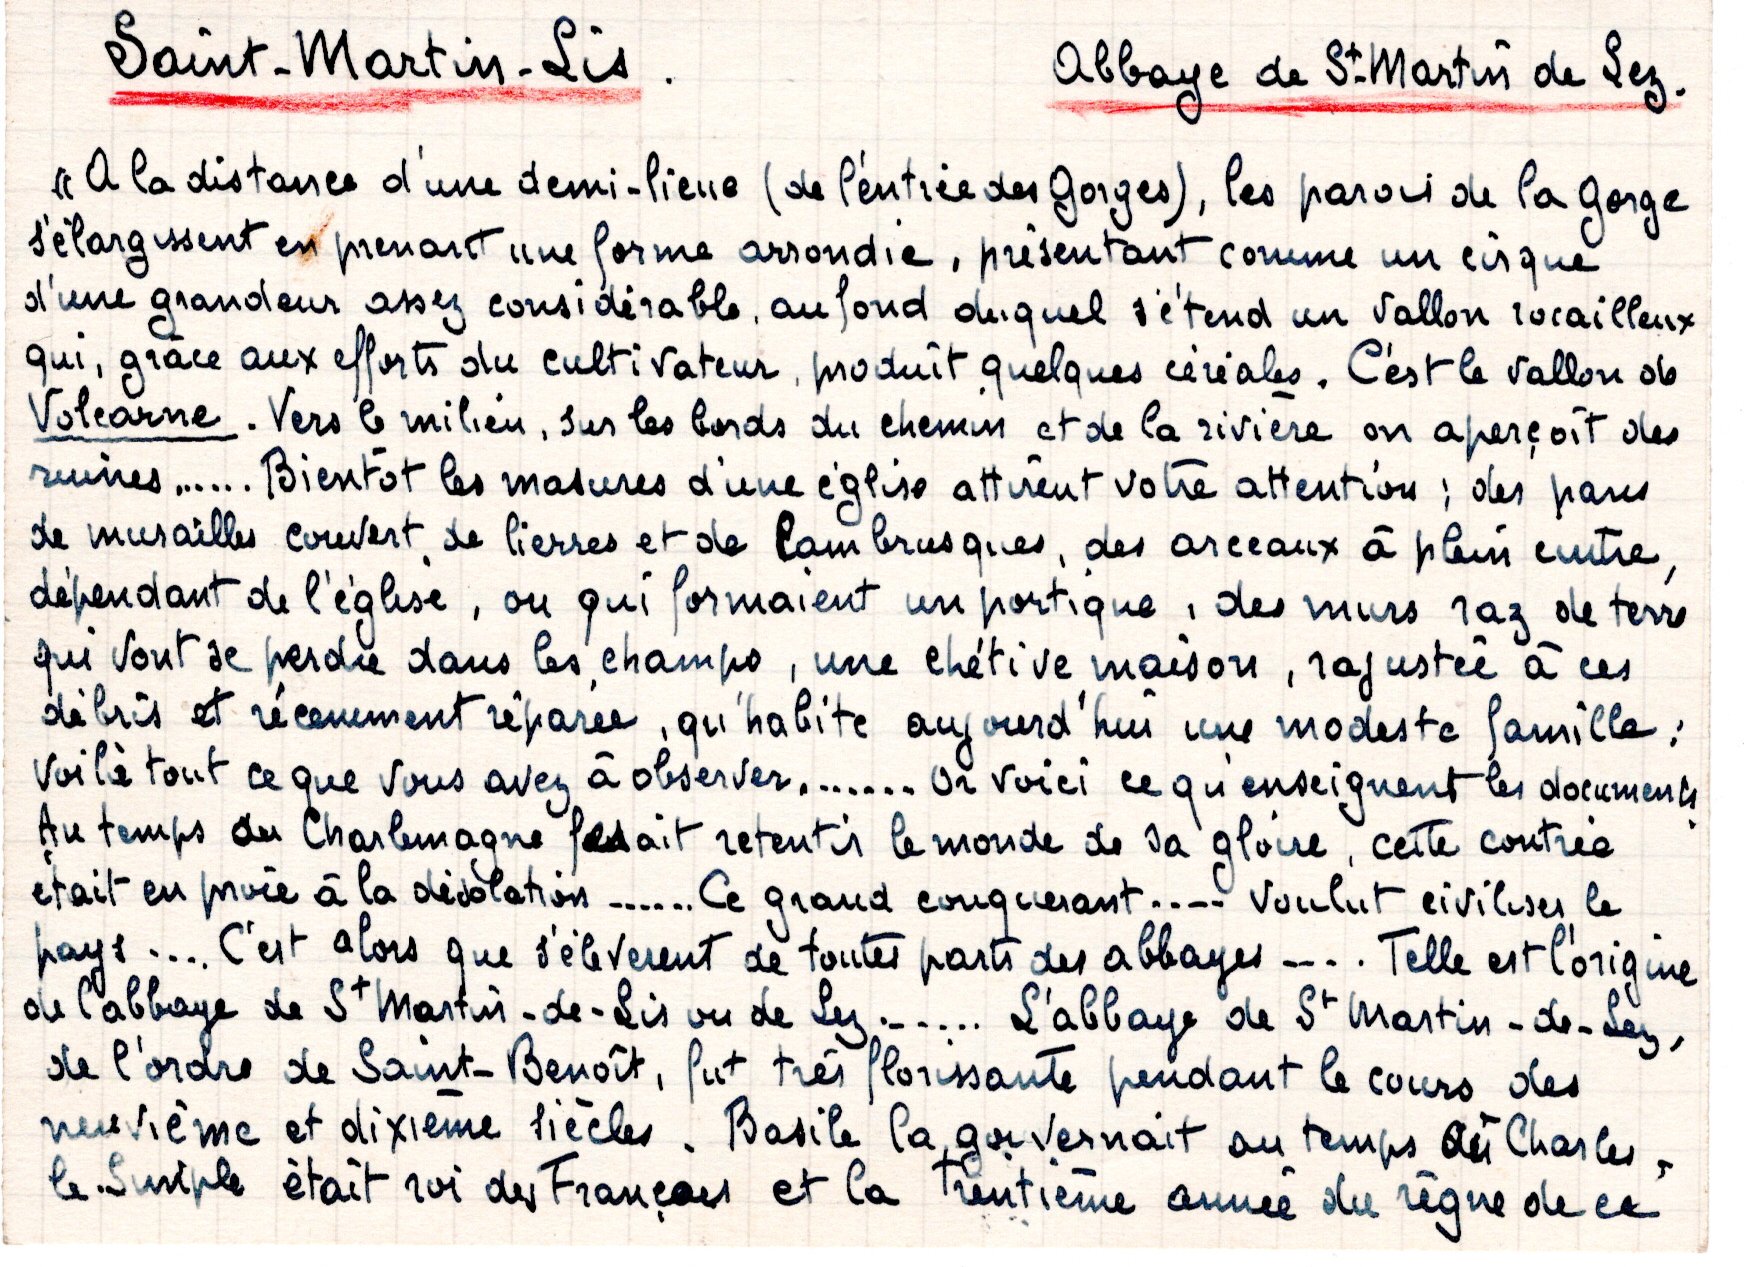 Saint-Martin-Lis. Abbaye de St-Martin de Lez.
« A la distance d'une demi-lieue (de l'entrée des Gorges), les parois de la Gorge
s'élargissent en prenant une forme arrondie, présentant comme un cirque
d'une grandeur assez considérable, au fond duquel s'étend un vallon rocailleux
qui, grâce aux efforts du cultivateur, produit quelques céréales. C'est le vallon de
Volcarne. Vers le milieu, sur les bords du chemin et de la rivière on aperçoit des
ruines...... Bientôt les masures d'une église attirent votre attention ; des pans
de murailles couvert de lierres et de lambrusques, des arceaux à plein cintre,
dépendant de l'église, ou qui formaient un portique, des murs raz de terre
qui vont se perdre dans les champs, une chétive maison, rajustée à ces
débris et récemment réparée, qu'habite aujourd'hui une modeste famille :
voilà tout ce que vous avez à observer........ Or voici ce qu'enseignent les documents.
Au temps où Charlemagne faisait retentir le monde de sa gloire, cette contrée
était en proie à la désolation ...... Ce grand conquerant .... voulut civiliser le
pays .... C'est alors que s'élevèrent de toutes parts des abbayes .... Telle est l'origine
de l'abbaye de St Martin-de-Lis ou de Lez ....... L'abbaye de St Martin-de-Lez,
de l'ordre de Saint-Benoît, fut très florissante pendant le cours des
neuvième et dixième siècles. Basile la gouvernait au temps où Charles
le Simple était roi des Français et la trentième année du règne de ce